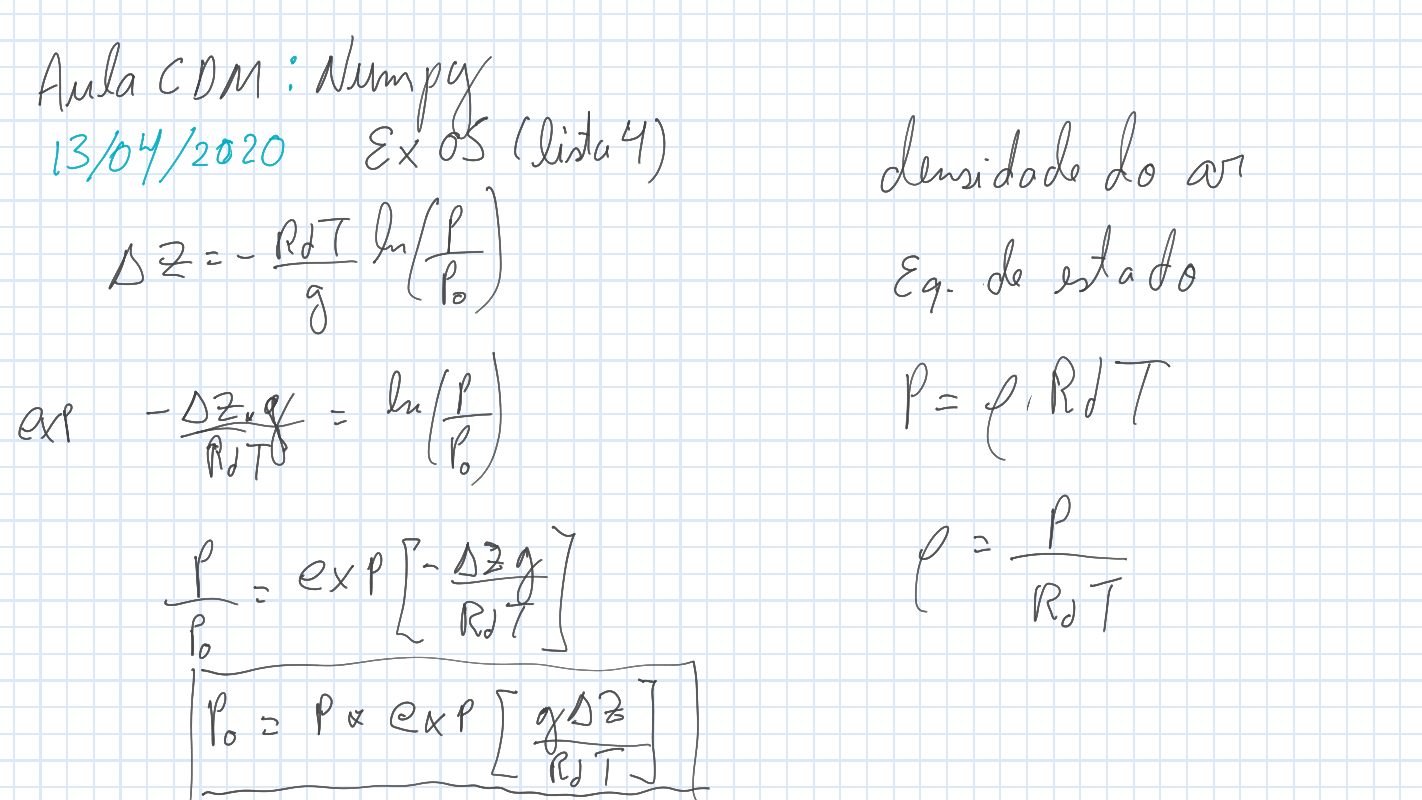 Aula CDM: Numpy
13/04/2020 Ex 05 (lista 4)
ΔZ = - RdT/g ln(P/P₀)
exp - ΔZ.g/RdT = ln(P/P₀)
P/P₀ = exp [- ΔZg/RdT]
P₀ = P * exp [gΔZ/RdT]
densidade do ar
Eq. de estado
P = ρ.RdT
ρ = P/RdT